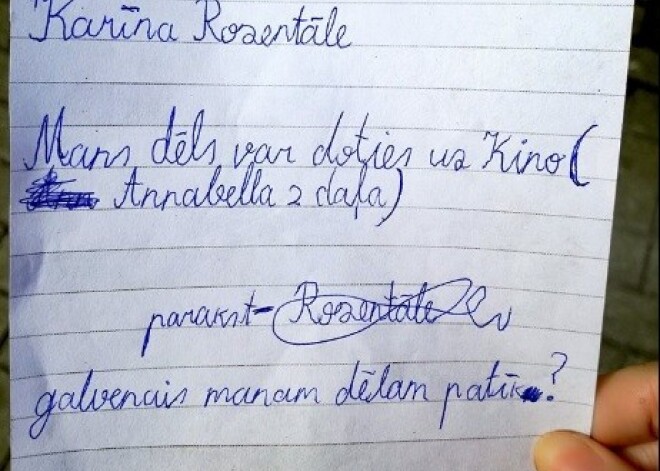 Karīna Rozentāle
Mans dēls var doties uz Kino (
Annabella 2 daļa)
parakst- Rozentāle
galvenais manam dēlam patīk?